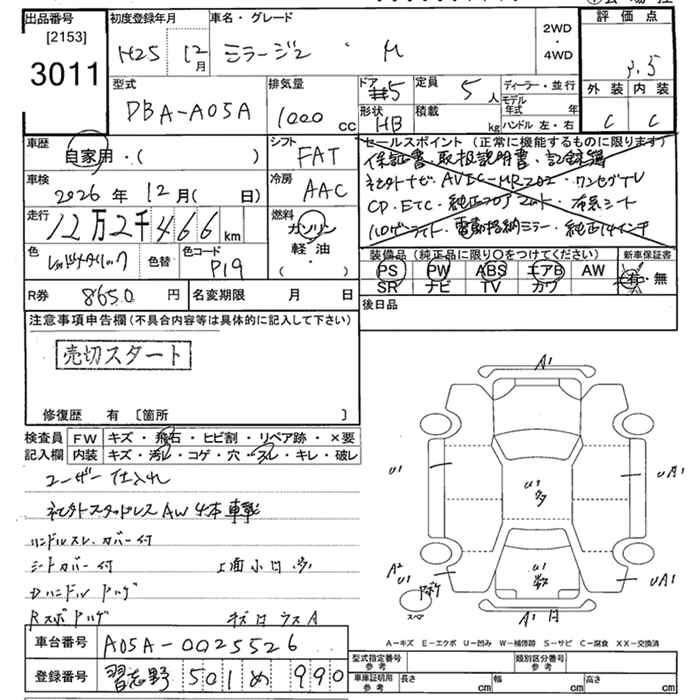 出品番号
[2153]
3011
初度登録年月
H25 12月
車名・グレード
ミラージュ・M
2WD
・
4WD
評価点
3.5
外装 内装
C C
型式
DBA-A05A
排気量
1000 cc
ドア
#5
形状
HB
定員
5人
積載
kg
ディーラー・並行
モデル年式 年
ハンドル 左・右
車歴
自家用・( )
シフト
FAT
車検
2026年 12月( 日)
冷房
AAC
走行
12万2千466km
燃料
ガソリン
軽・油
・
( )
色
色替
色コード
P19
R券 8650円
名変期限 月 日
セールスポイント (正常に機能するものに限ります)
保証書・取扱説明書・記録簿
ネクストナビ AVIC-MRZ02・ワンセグTV
CD・ETC・純正フロアマット・布系シート
ハロゲンライト・電動格納ミラー・純正14インチ
装備品 (純正品に限り〇をつけてください)
新車保証書
PS PW ABS エアB AW
SR ナビ TV カワ
有・無
後日品
注意事項申告欄(不具合内容等は具体的に記入して下さい)
売切スタート
修復歴 有 〔箇所 〕
検査員記入欄
FW キズ・飛石・ヒビ割・リペア跡・×要
内装 キズ・汚レ・コゲ・穴・スレ・キレ・破レ
ユーザー仕入れ
ネクストスタッドレスAW 4本車載
ハンドルスレ.カバー付
シートカバー付
上面小凹多
Dハンドル
Rスポ
キズ凹ウスA
A1
U1
U1
多
UA1
A2
U1
U1
UA1
スペア
A1 凹
A-キズ E-エクボ U-凹み W-補修跡 S-サビ C-腐食 XX-交換済
車台番号 A05A-0025526
登録番号 習志野 501 め 990
型式指定番号
参考
類別区分番号
参考
車庫証明用
参考
長さ cm
幅 cm
高さ cm